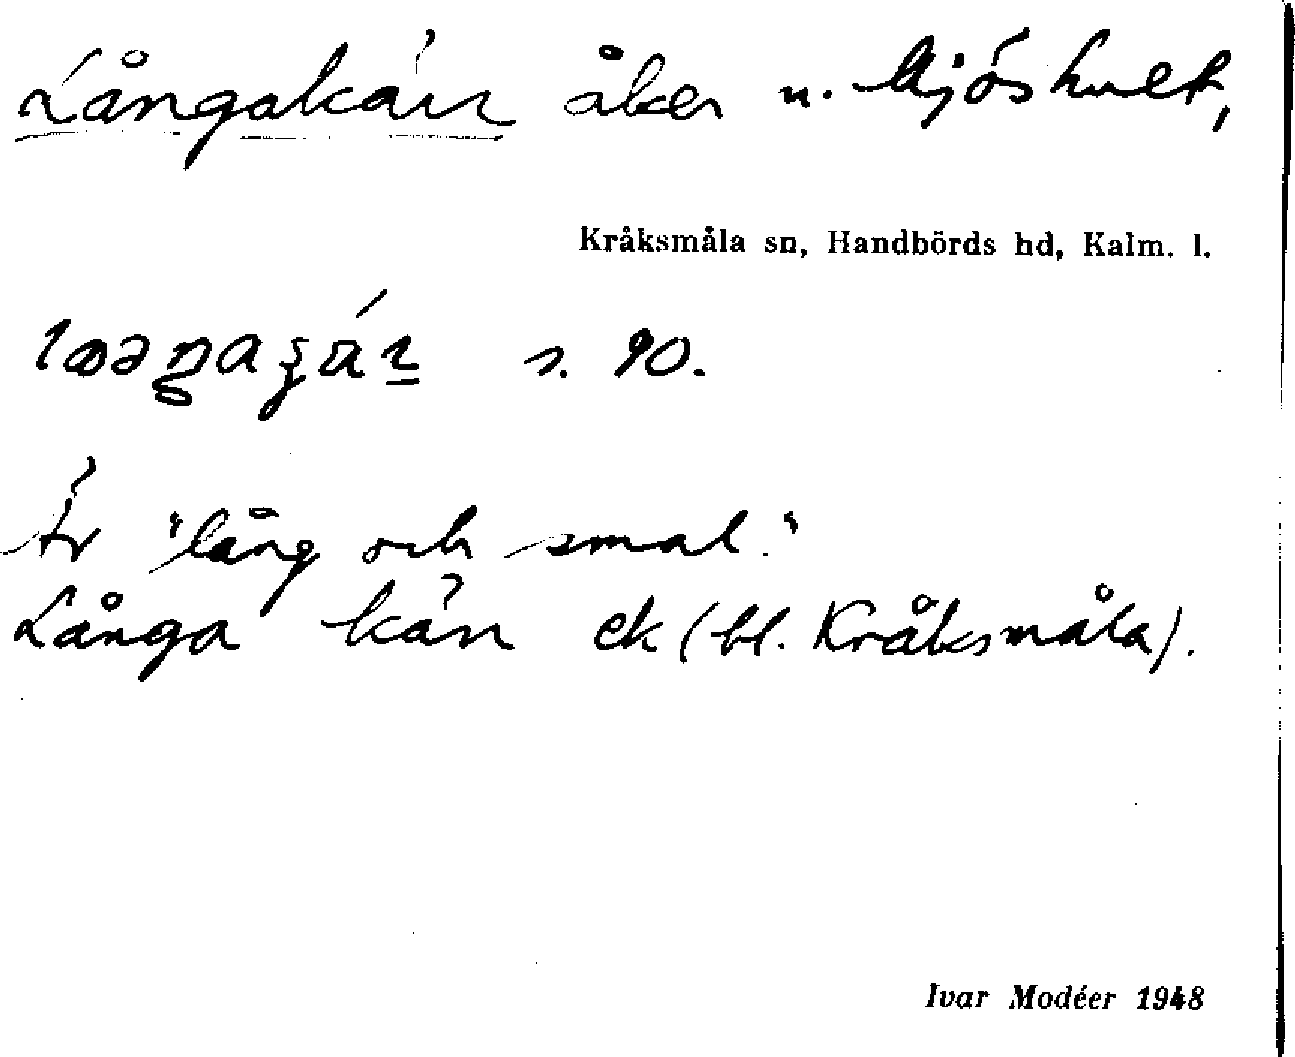 Långakärr åker n. Mjöshult,
Kråksmåla sn, Handbörds hd, Kalm. l.
s. 90.
Är "lång och smal."
Långa kärr ek (bl. Kråksmåla).
Ivar Modéer 1948